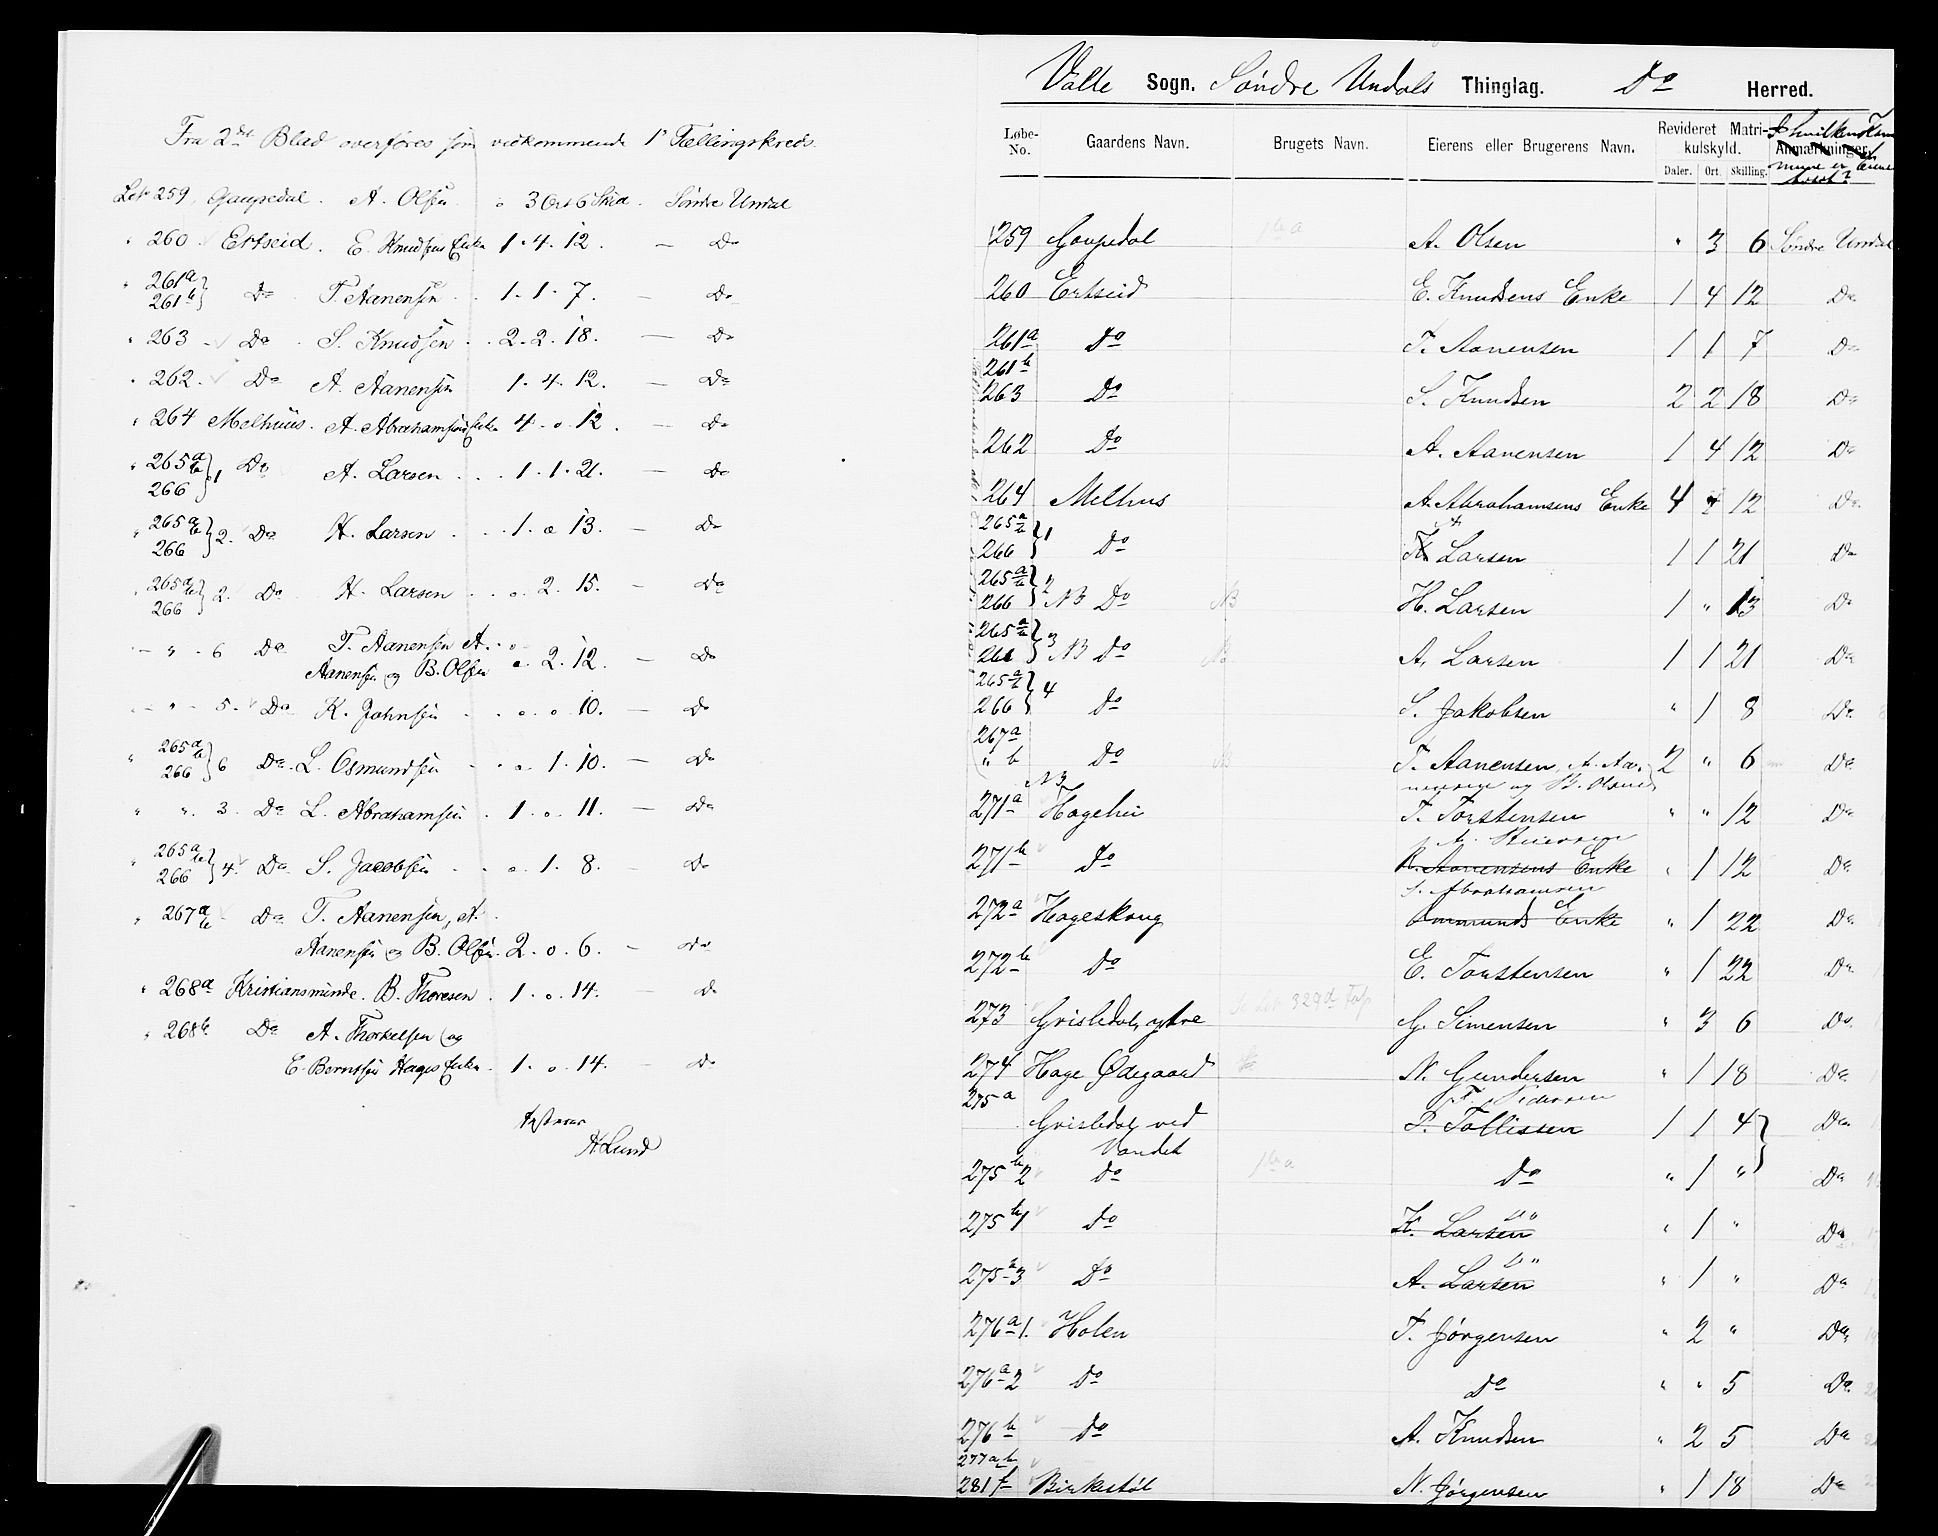 Fra 2det Blad overføres som vedkommende 1e Tællingskreds.
Lbr 259, Gaupedal. A. Olsen " 3 Ort 6 Skd. Søndre Undal
" 260 Ertseid. E. Knudsens Enke 1. 4. 12. — Do
" 261a 261b } Do T. Aanensen . . 1. 1. 7. — Do
" 263 Do . S. Knudsen . . 2. 2. 18. — Do
" 262. Do A. Aanensen 1. 4. 12. — Do
" 264 Melhuus. A. Abrahamsens Enke 4. o. 12. — Do
" 265a/b 266 } 1 Do A. Larsen . . . 1. 1. 21. — Do
" 265a/b 266 } 2. Do H. Larsen . . 1. o 13. — Do
" 265a/b 266 } 2. Do H. Larsen . . o. 2. 15. — Do
— " - 6 Do T. Aanensen A.
Aanensen og B. Olsen o. 2. 12. — Do
— " - 5. Do K. Johnsen . . o. o. 10. — Do
" 265a/b 266 } 6 Do. L. Osmundsen . . o. 1. 10. — Do
" ". 3. Do L. Abrahamsen . 1. o. 11. — Do
" 265a/b 266 } 4. Do S. Jacobsen . . o. 1. 8. — Do
" 267a/b Do T. Aanensen, A.
Aanensen og B. Olsen. 2. o. 6. — Do
" 268a Kristiansminde. B. Thoresen . 1. o. 14. — Do
" 268b Do A. Thorkelsen og
E. Berntsen Hages Enke . 1. o. 14. — Do
A Lund
Valle Sogn. Søndre Undals Thinglag. Do Herred.
Løbe-No. Gaardens Navn. Brugets Navn. Eierens eller Brugerens Navn. Revideret Matrikulskyld. Anmærkninger.
Daler. Ort. Skilling.
I hvilken Kommune er Eieren bosat?
259 Gaupedal A. Olsen " 3 6 Søndre Undal
260 Ertseid E. Knudsens Enke 1 4 12 Do
261a Do T. Aanensen 1 1 7 Do
261b
263 Do S. Knudsen 2 2 18 Do
262 Do A. Aanensen 1 4 12 Do
264 Melhus A. Abrahamsens Enke 4 " 12 Do
265a/b 266 } 1 Do A. Larsen 1 1 21 Do
265a/b 266 } 2 NB Do NB H. Larsen 1 " 13 Do
265a/b 266 } 3 NB Do NB A. Larsen 1 1 21 Do
265a/b 266 } 4 Do S. Jakobsen " 1 8 Do
267a " b Do T. Aanensen, A. Aanensen og B. Olsen 2 " 6 Do
NB
271a Hagehei T. Torstensen " " 12 Do
271b Do R. Aanensens Enke " 1 12 Do
S. Abrahamsen
272a Hageskoug Ommunds Enke " 1 22 Do
272b Do E. Torstensen " 1 22 Do
273 Grisledal, ytre G. Simensen " 3 6 Do
274 Hage Ødegaard N. Gundersen " 1 18 Do
275a
Grisledal ved Vandet P. Tollissen 1 1 4 Do
275b 2 Do Do " 1 " Do
275b 1 Do H. Larsen " 1 " Do
275b 3 Do A. Larsen " 1 " Do
276a 1. Holen T. Jørgensen " 2 " Do
276a 2 Do Do " " 5 Do
276b Do A. Knudsen " 2 5 Do
277a b
281f Birkestøl N. Jørgensen " 1 18 Do